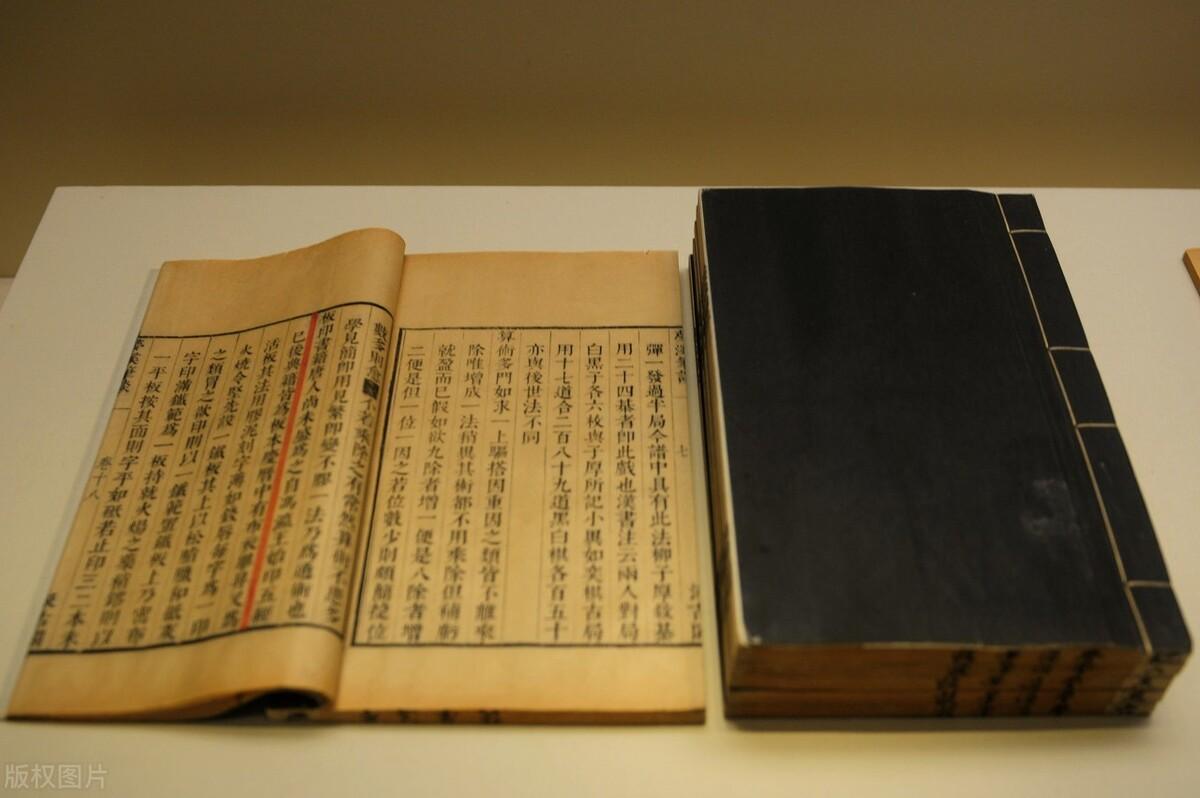 夢溪筆談
七
汲古閣
彈一發過半局今譜中具有此法柳子厚敘棊
用二十四棊者即此戲也漢書注云兩人對局
白黑子各六枚與子厚所記小異如奕棋古局
用十七道合二百八十九道黑白棋各百五十
亦與後世法不同
算術多門如求一上驅搭因重因之類皆不離乘
除唯增成一法稍異其術都不用乘除但補虧
就盈而已假如欲九除者增一便是八除者增
二便是但一位一因之若位數少則頗簡捷位
數多則愈繁不若乘除之有常然算術不患多
學見簡即用見繁即變不膠一法乃爲通術也
板印書籍唐人尚未盛爲之自馮瀛王始印五經
已後典籍皆爲板本慶曆中有布衣畢昇又爲
活板其法用膠泥刻字薄如錢唇每字爲一印
火燒令堅先設一鐵板其上以松脂臘和紙灰
之類冒之欲印則以一鐵範置鐵板上乃密布
字印滿鐵範爲一板持就火煬之藥稍鎔則以
一平板按其面則字平如砥若止印三二本未
夢溪筆談
卷十八
汲古閣
版权图片